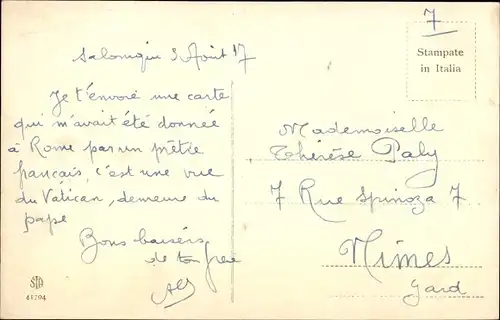 7
Stampate
in Italia
Salonique 3 Août 17
Je t'envoie une carte
qui m'avait été donnée
à Rome par un prêtre
français, c'est une vue
du Vatican, demeure du
pape
Bons baisers
de ton frère
Mademoiselle
Thérèse Paly
7 Rue Spinoza 7
Nimes
Gard
STA
41704